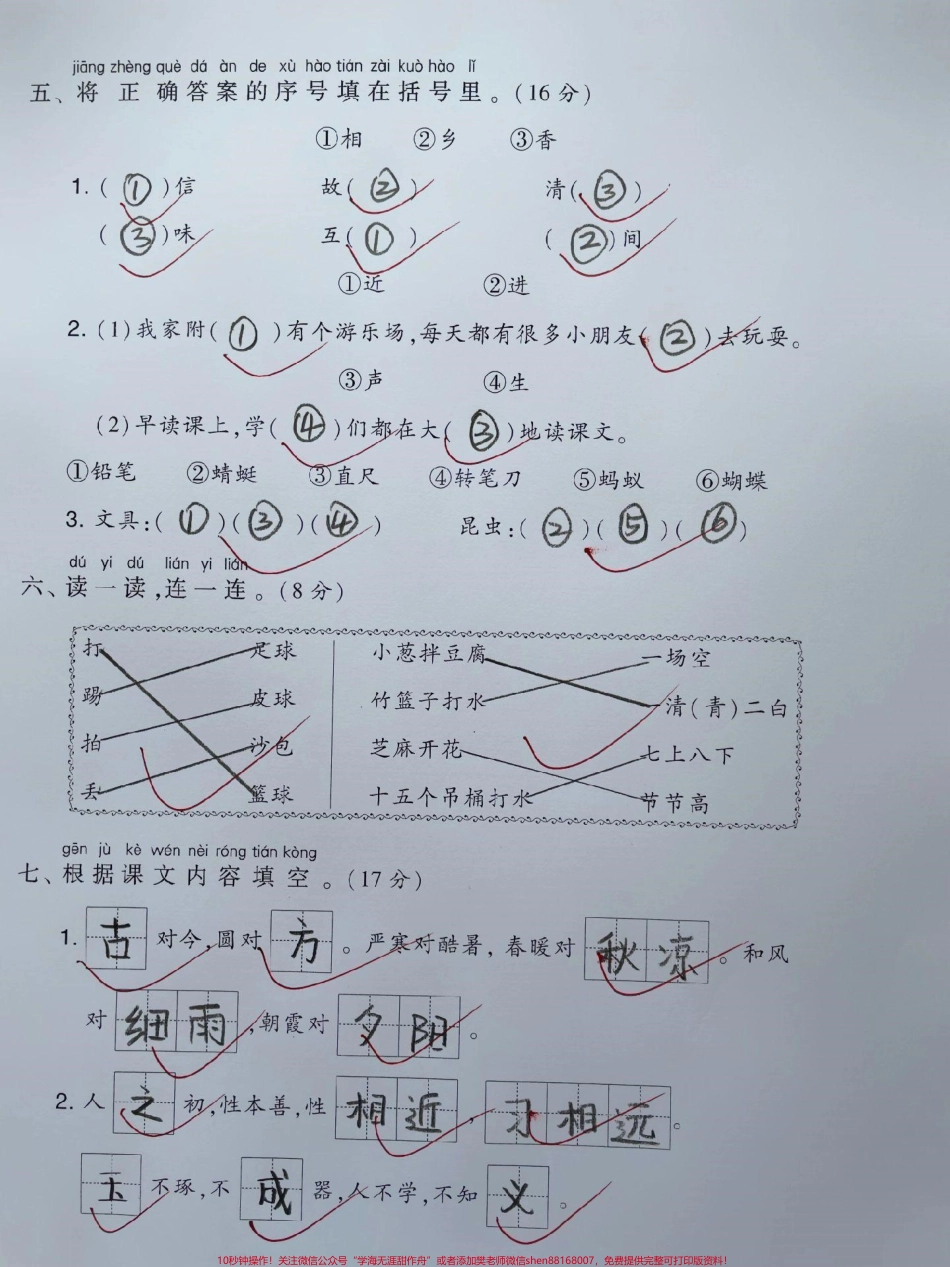 jiāng zhèng què dá àn de xù hào tián zài kuò hào lǐ
五、将正确答案的序号填在括号里。(16分)
①相 ②乡 ③香
1. (①)信 故(②) 清(③)
(③)味 互(①) (②)间
①近 ②进
2. (1)我家附(①)有个游乐场,每天都有很多小朋友(②)去玩耍。
③声 ④生
(2)早读课上,学(④)们都在大(③)地读课文。
①铅笔 ②蜻蜓 ③直尺 ④转笔刀 ⑤蚂蚁 ⑥蝴蝶
3. 文具:(①)(③)(④) 昆虫:(②)(⑤)(⑥)
dú yi dú lián yi lián
六、读一读,连一连。(8分)
打 足球 小葱拌豆腐 一场空
踢 皮球 竹篮子打水 一清(青)二白
拍 沙包 芝麻开花 七上八下
丢 篮球 十五个吊桶打水 节节高
gēn jù kè wén nèi róng tián kòng
七、根据课文内容填空。(17分)
1. 古对今,圆对方。严寒对酷暑,春暖对秋凉。和风
对细雨,朝霞对夕阳。
2. 人之初,性本善,性相近,习相远。
玉不琢,不成器,人不学,不知义。
10秒钟操作!关注微信公众号“学海无涯甜作舟”或者添加樊老师微信shen88168007,免费提供完整可打印版资料!